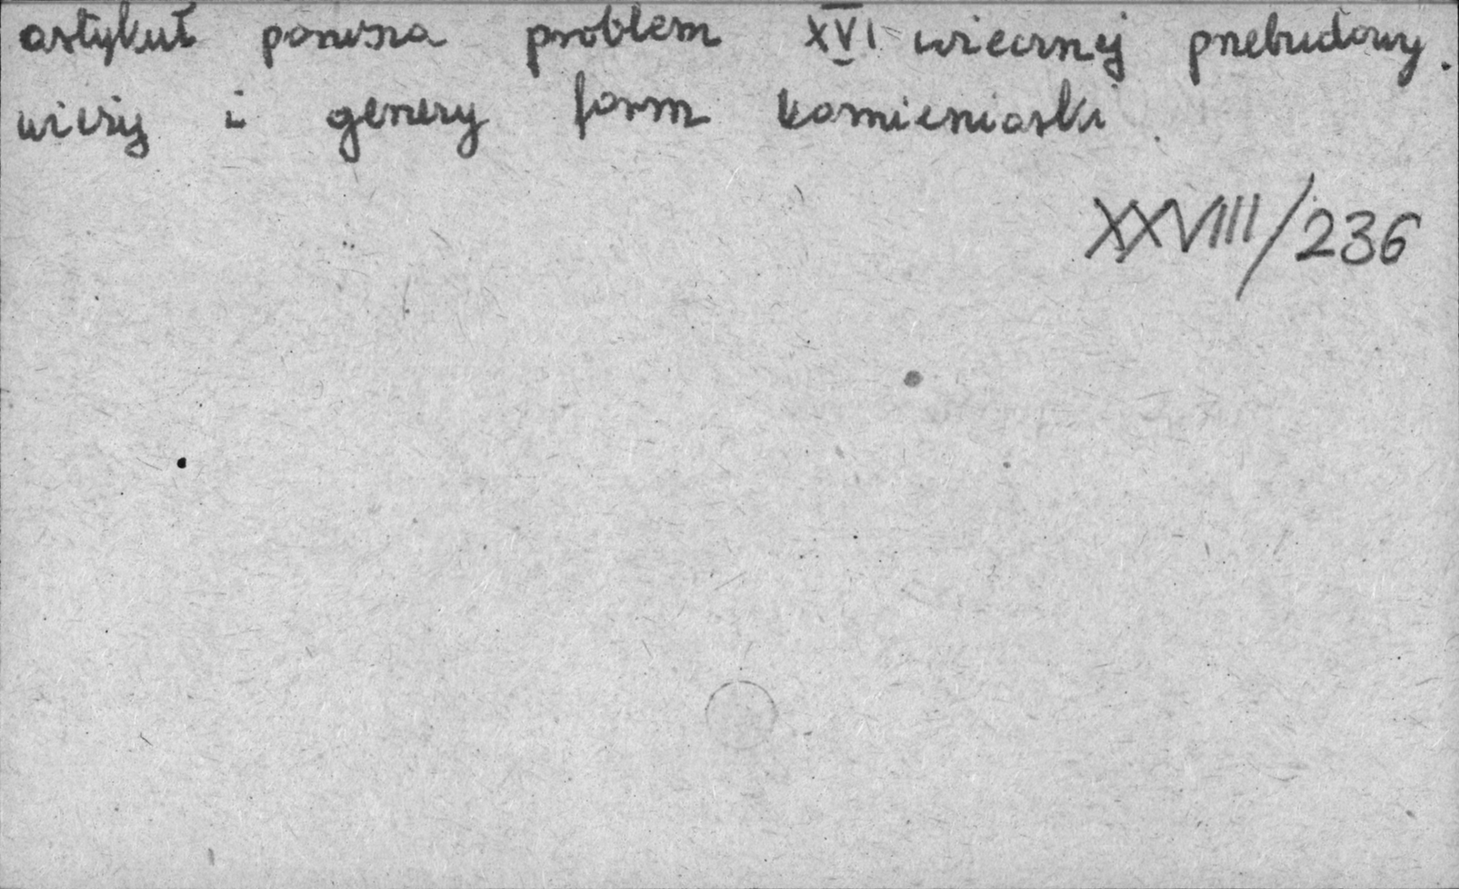 artykuł porusza problem XVI wiecznej przebudowy.
wieży i genezy form kamieniarki.
XXVIII/236